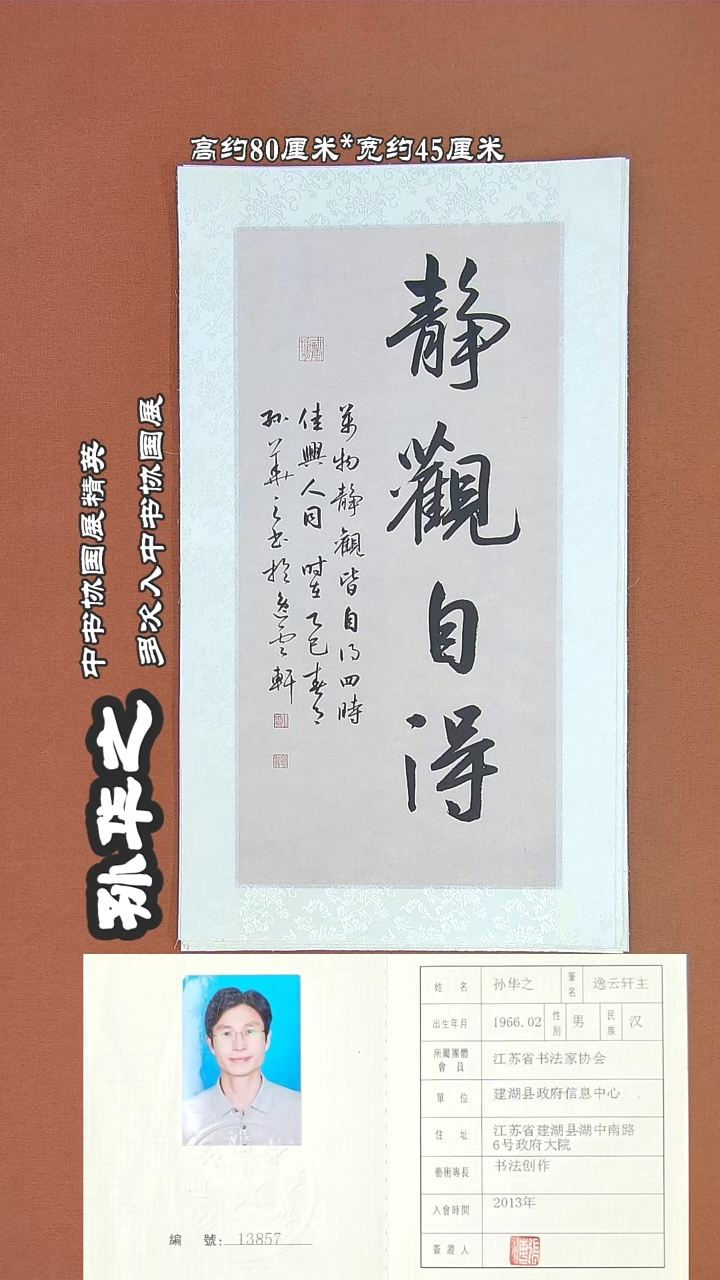 高约80厘米*宽约45厘米
中书协国展精英
多次入中书协国展
孙华之
静觀自得
萬物静觀皆自得四時
佳興人同 时在乙巳春月
孙華之书於逸雲軒
姓名 孙华之 筆名 逸云轩主
出生年月 1966.02 性別 男 民族 汉
所屬團體會員 江苏省书法家协会
單位 建湖县政府信息中心
住址 江苏省建湖县湖中南路
6号政府大院
藝術專長 书法创作
入會時間 2013年
簽證人
編號: 13857